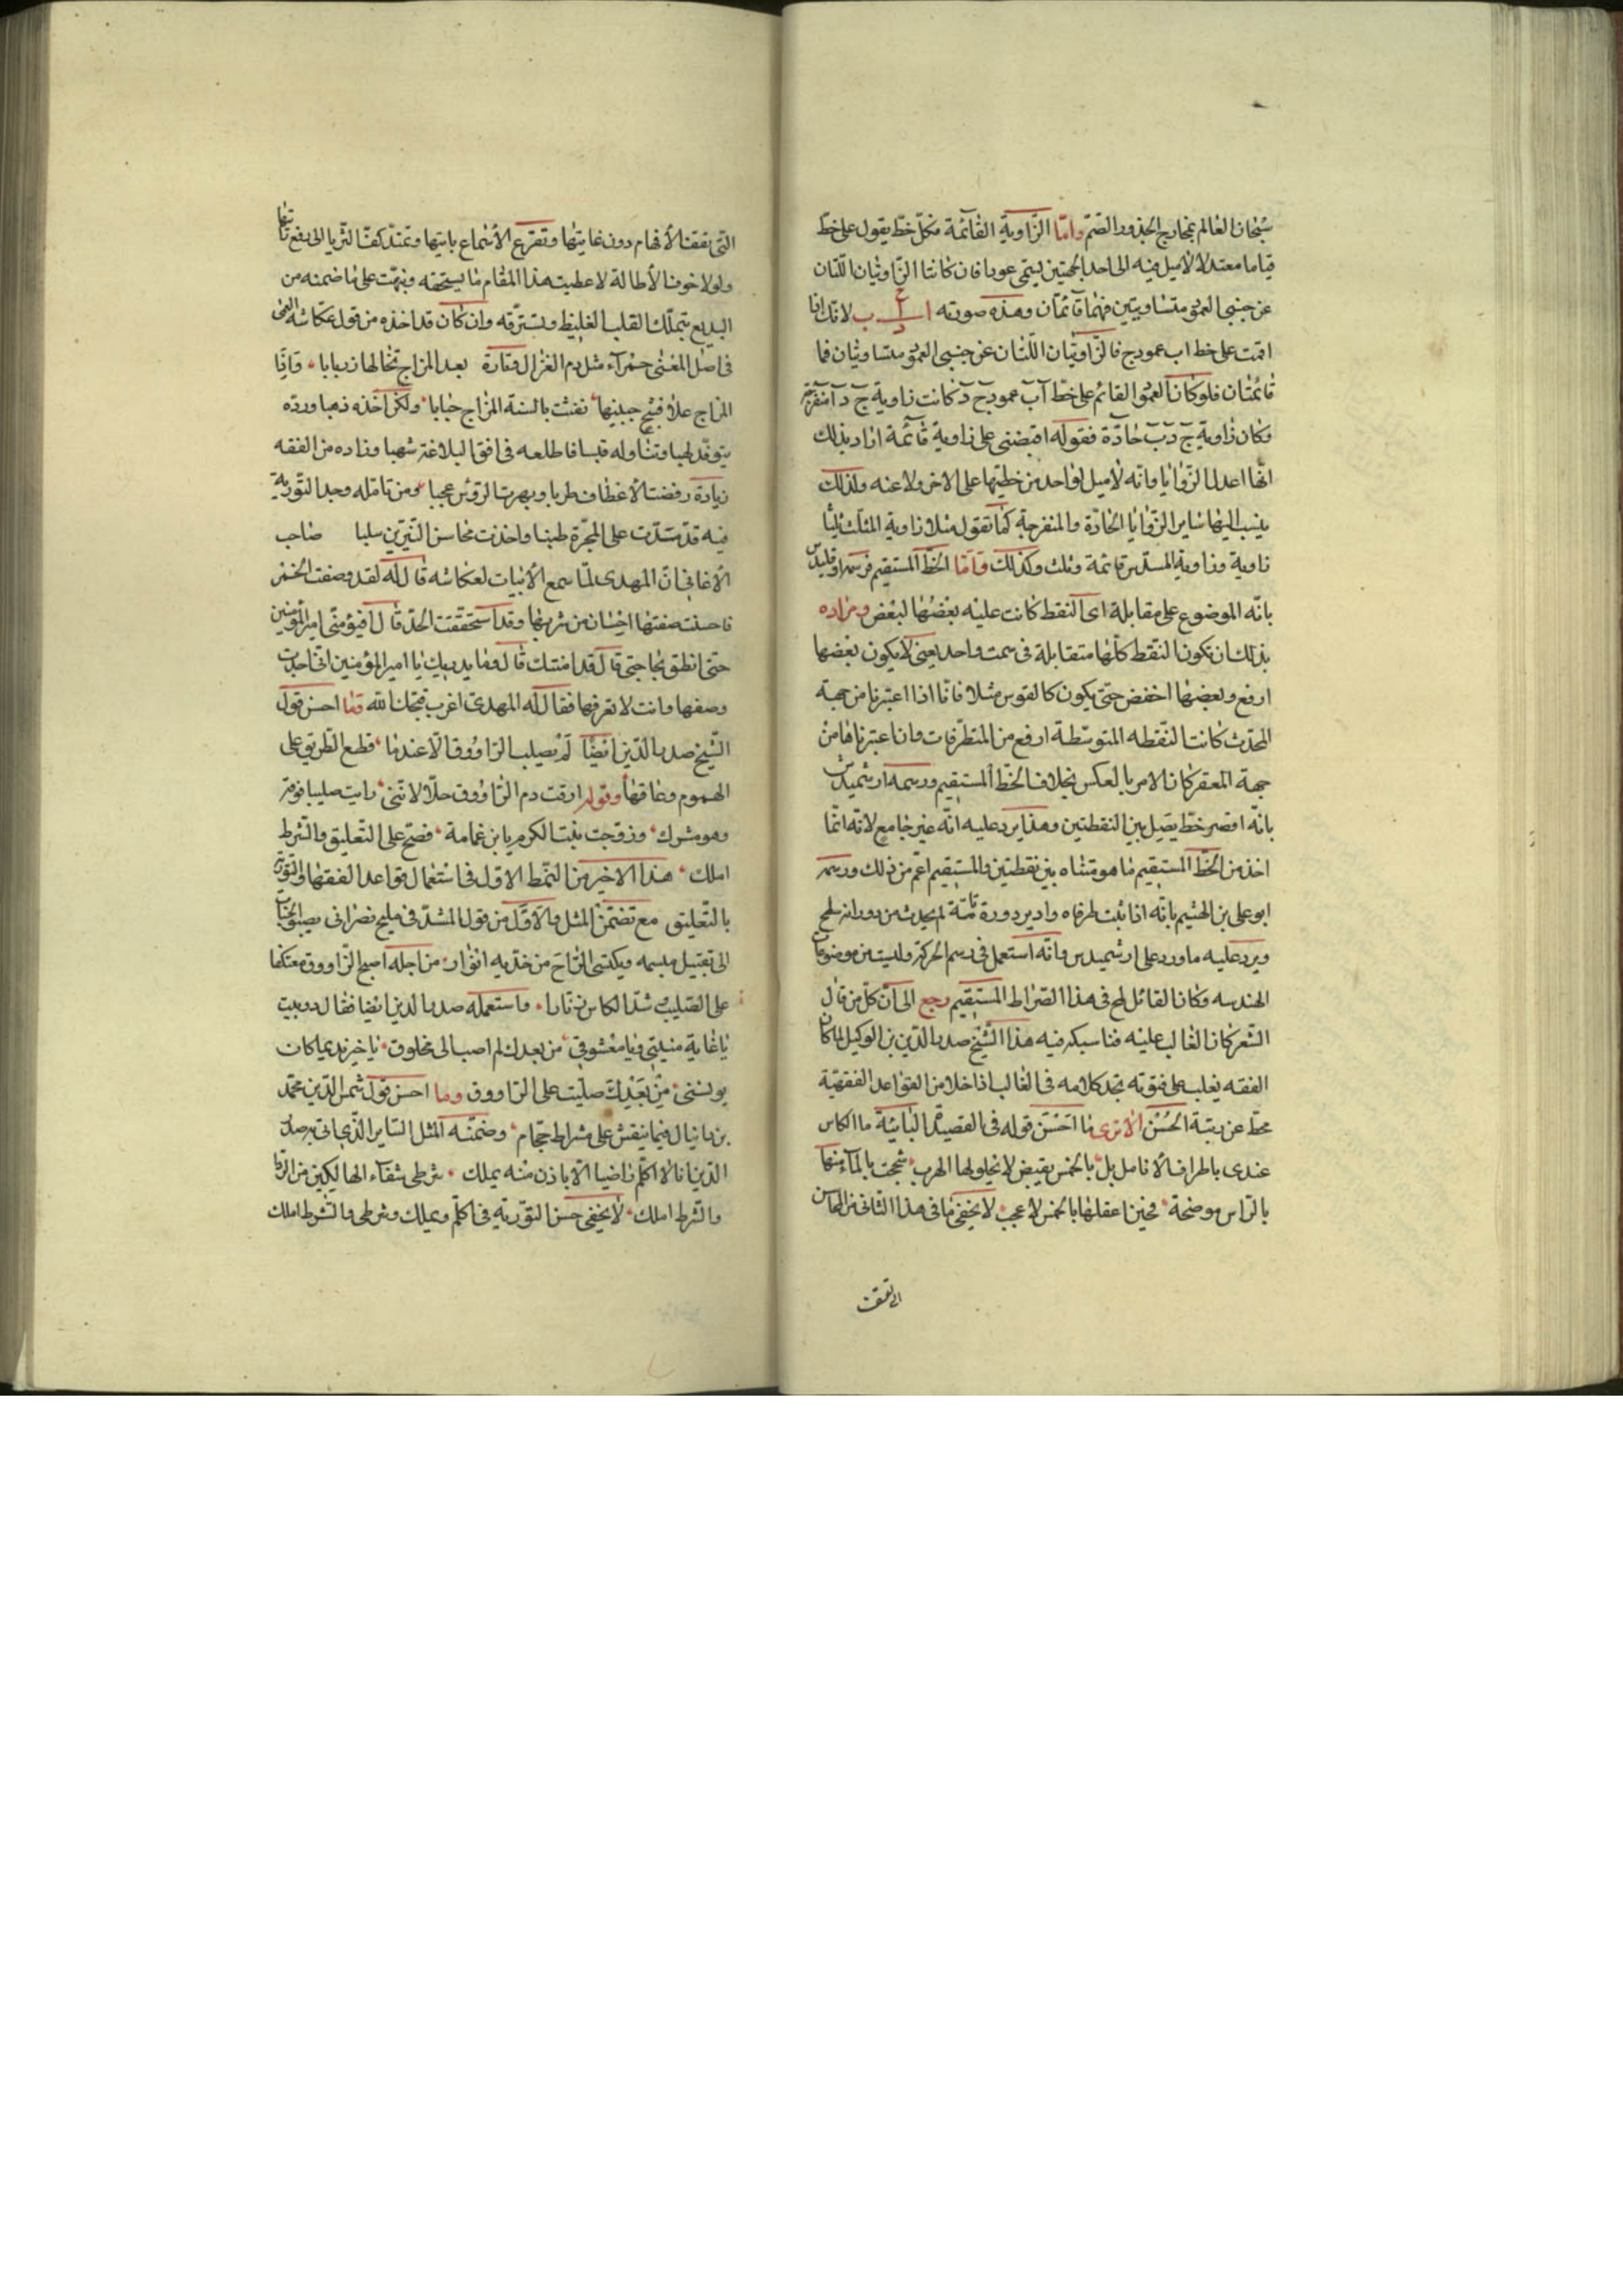 سبحان العالم بمخارج الجذور الصم واما الزاوية القائمة فكل خط يقوم على خط
قياما معتدلا لا ميل فيه الى احد الجهتين يسمى عمودا فان كانتا الزاويتان اللتان
عن جنبي العمود متساويتين فهما قائمتان وهذه صورته ا ج د ب لانك اذا
اقمت على خط اب عمود ج فالزاويتان اللتان عن جنبي العمود متساويتان فما
قائمتان فلو كان العمود القائم على خط آب عمود ج د كانت زاوية ج د آ منفرجة
وكان زاوية ج د ب حادة فقوله اقتضى على زاوية قائمة اراد بذلك
انها اعدل الزوايا وانه لا ميل لواحد من خطيها على الاخر ولا عنه ولذلك
ينسب اليها ساير الزوايا الحادة والمنفرجة كما تقول مثلا زاوية المثلث ثلثا
زاوية وزاوية المسدس قائمة وثلث وكذلك واما الخط المستقيم فرسمه اوقليدس
بانه الموضوع على مقابلة اى النقط كانت عليه بعضها لبعض ومراده
بذلك ان تكون النقط كلها متقابلة فى سمت واحد يعنى لا يكون بعضها
ارفع وبعضها اخفض حتى يكون كالقوس مثلا فانا اذا اعتبرنا من جهة
المحدث كانت النقطه المتوسطة ارفع من المتطرفات وان اعتبرناها من
جهة المقعر كان الامر بالعكس بخلاف الخط المستقيم ورسمه ارشميدس
بانه اقصر خط يصل بين النقطتين وهذا يرد عليه انه غير جامع لانه انما
اخذ من الخط المستقيم ما هو متناه بين نقطتين والمستقيم اعم من ذلك ورسمه
ابو على بن الهشيم بانه اذا ثبت طرفاه وادير دورة تامة لم يحدث من دورانه سطح
ويرد عليه ما ورد على ارشميدس وانه استعمل فى رسم الحركة وليست من موضوعات
الهندسه وكان القائل لح فى هذا الصراط المستقيم رجع الى ان كل من قال
الشعر كان الغالب عليه مناسبكه فيه هذا الشيخ صدر الدين بن الوكيل لما كان
الفقه يغلب على فنونه تجد كلامه فى الغالب اذا خلا من القواعد الفقهية
محط عن رتبة الحسن الا ترى ما احسن قوله فى القصيدة البائية ما الكاس
عندى باطراف الانامل بل بالخمس يقبض لا يحلولها الهرب شججت بالماء منها
بالراس موضحة فحين اعقلها بالخمس لا عجب لا يخفى ما فى هذا الثانى من المحاسن
التى تقف
التى تقف الافهام دون غايتها وتقرع الاسماع بايتها وتمتد كف الثريا الى رفع رايتها
ولولا خوف الاطالة لاعطيت هذا المقام ما يستحقه ونبهت على ما ضمنه من
البديع يتملك القلب الغليظ ويسترقه وان كان قد اخذه من قول عكاشة العمى
فى اصل المعنى حمراء مثل دم الغزال وتارة بعد المزاج تخالها زريابا واذا
المزاج علا فشج جبينها نفثت بالسنة المزاج حبابا ولكن اخذه ذهبا ورده
يتوقد لهبا وتناوله قبسا فاطلعه فى افق البلاغة شهبا وزاده من الفقه
زيادة رفضت الاعطاف طربا وبهرت الرؤس عجبا ومن تامله وجد التورية
فيه قد تسدت على المجرة طنبا واخذت محاسن النيرين سلبا صاحب
الاغانى ان المهدى لما سمع الابيات لعكاشه قال له لقد وصفت الخمر
فاحسنت صفتها احسان من شربها وقد استحققت الحد قال افيؤمنى امير المؤمنين
حتى انطق بحاجتى قال قد امنتك قال وما يدريك يا امير المؤمنين انى اجدت
وصفها وانت لا تعرفها فقال له المهدى اغرب قبحك الله وما احسن قول
الشيخ صدر الدين ايضا لم يصلب الراووق الا عندنا قطع الطريق على
الهموم وعاقها وقوله ارقت دم الراووق حلا لاننى رايت صليبا فوقه
وهو مشرك وزوجت بنت الكرم يا بن غمامة فصح على التعليق والشرط
املك هذا الاخير من النمط الاول فى استعمال قواعد الفقها والتورية
بالتعليق مع تضمن المثل والاول من قول المشد فى مليح نصرانى
الى تقبيل مبسمه ويكتسى الراح من خديه انوارا من اجله اصبح الراووق معتكفا
على الصليب شد الكاس زنارا واستعمله صدر الدين ايضا فقال دوبيت
يا غاية منيتى ويا معشوقى من بعدك لم اصب الى مخلوق يا خير نديم كان
يونسنى من بعدك صليت على الراووق وما احسن قول شمس الدين محمد
بن دانيال فيما ينقش على مشراط حجام وضمنه المثل الساير الذى اتى به صدر
الدين انا لا اكلم راضيا الا باذن منه يملك شرطى شفاء الها
والشرط املك لا يخفى حسن التورية فى اكلم ويملك وشرطى والشرط املك